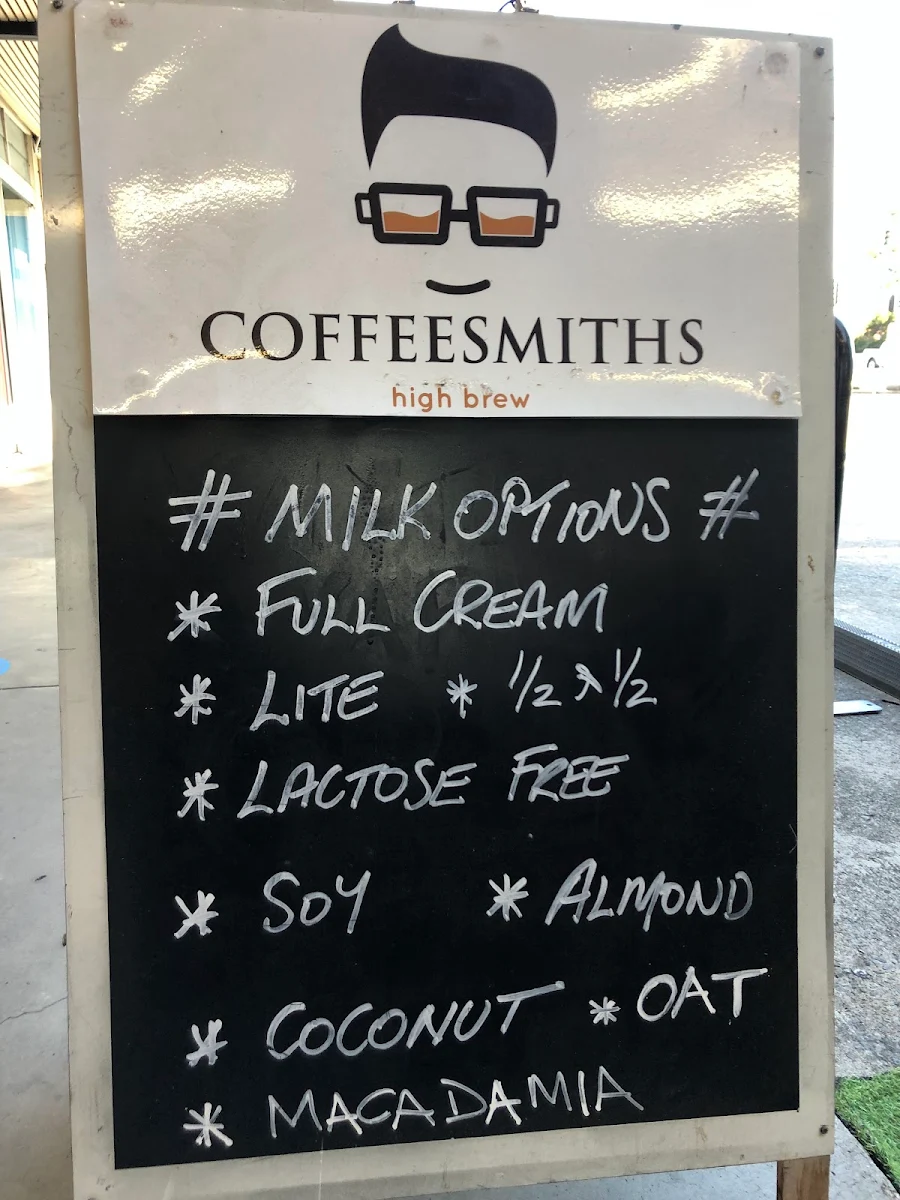 COFFEESMITHS
high brew
# MILK OPTIONS #
* FULL CREAM
* LITE * 1/2 & 1/2
* LACTOSE FREE
* SOY * ALMOND
* COCONUT * OAT
* MACADAMIA